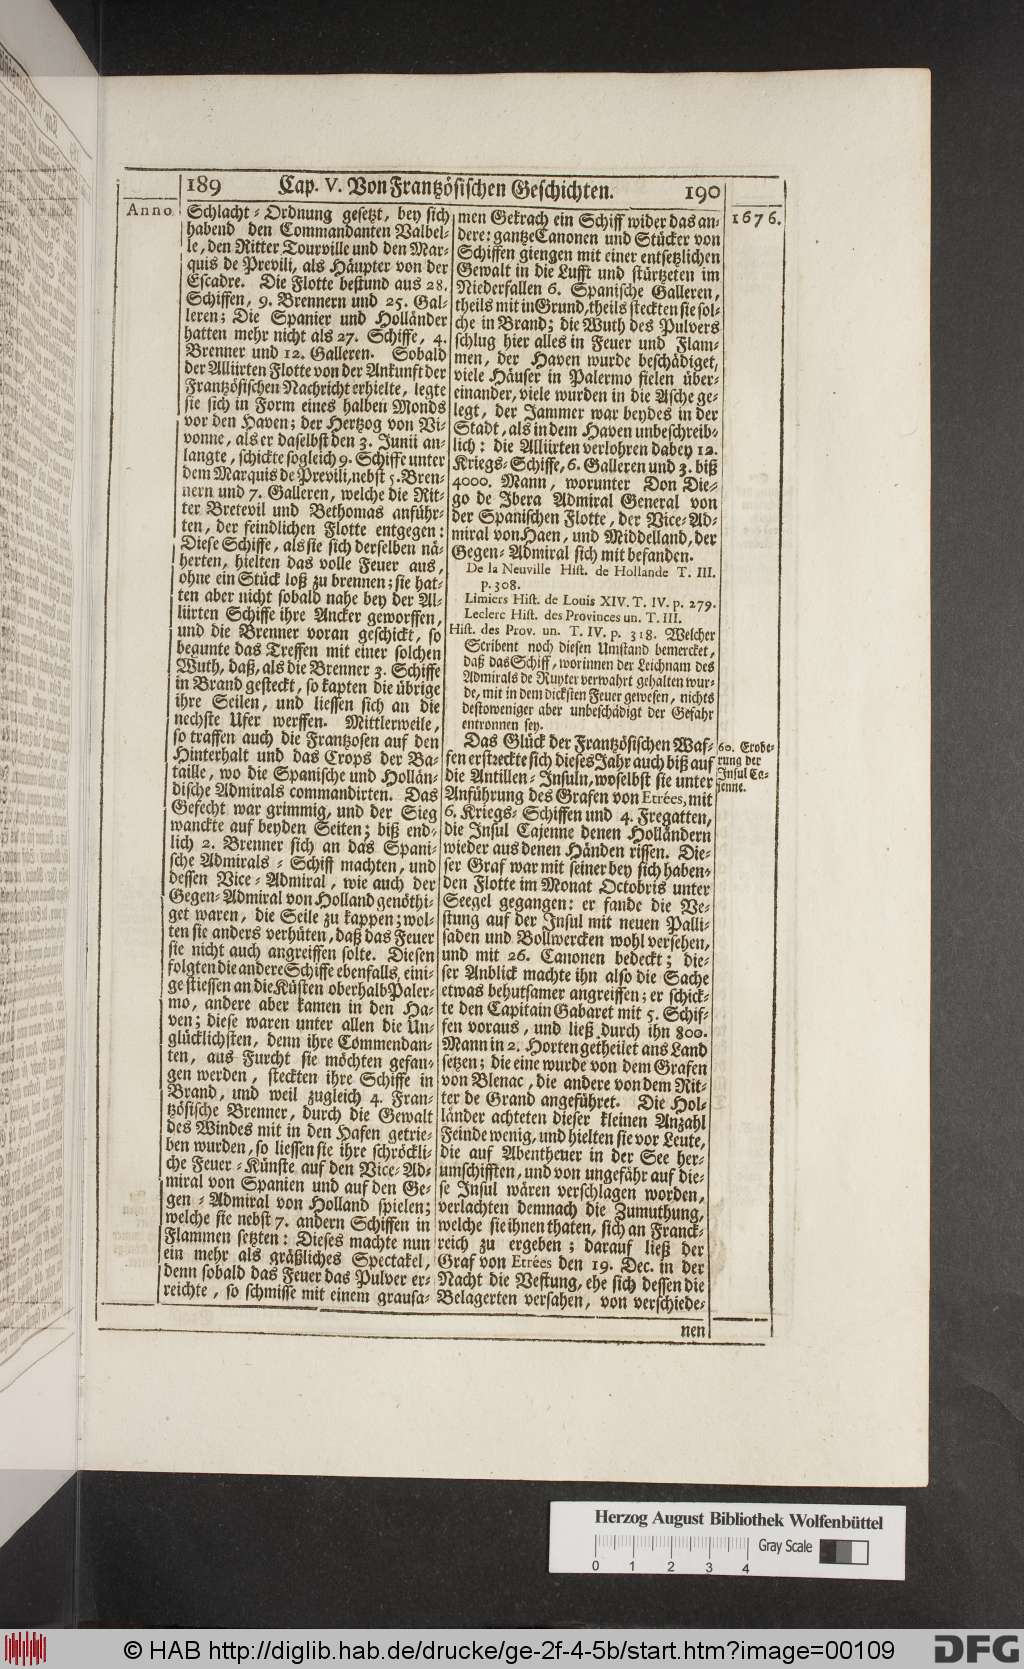 189 Cap. V. Von Frantzösischen Geschichten. 190
Anno
1676.
Schlacht-Ordnung gesetzt, bey sich
habend den Commandanten Valbel-
le, den Ritter Tourville und den Mar-
quis de Previli, als Häupter von der
Escadre. Die Flotte bestund aus 28.
Schiffen, 9. Brennern und 25. Gal-
leren; Die Spanier und Holländer
hatten mehr nicht als 27. Schiffe, 4.
Brenner und 12. Galleren. Sobald
der Alliirten Flotte von der Ankunft der
Frantzösischen Nachricht erhielte, legte
sie sich in Form eines halben Monds
vor den Haven; der Hertzog von Vi-
vonne, als er daselbst den 3. Junii an-
langte, schickte sogleich 9. Schiffe unter
dem Marquis de Previli, nebst 5. Bren-
nern und 7. Galleren, welche die Rit-
ter Bretevil und Bethomas anführ-
ten, der feindlichen Flotte entgegen:
Diese Schiffe, als sie sich derselben nä-
herten, hielten das volle Feuer aus,
ohne ein Stück loß zu brennen; sie hat-
ten aber nicht sobald nahe bey der Al-
liirten Schiffe ihre Ancker geworffen,
und die Brenner voran geschickt, so
begunte das Treffen mit einer solchen
Wuth, daß, als die Brenner 3. Schiffe
in Brand gesteckt, so kapten die übrige
ihre Seilen, und liessen sich an die
nechste Ufer werffen. Mittlerweile,
so traffen auch die Frantzosen auf den
Hinterhalt und das Crops der Ba-
taille, wo die Spanische und Hollän-
dische Admirals commandirten. Das
Gefecht war grimmig, und der Sieg
wanckte auf beyden Seiten; biß end-
lich 2. Brenner sich an das Spani-
sche Admirals-Schiff machten, und
dessen Vice-Admiral, wie auch der
Gegen-Admiral von Holland genöthi-
get waren, die Seile zu kappen; wol-
ten sie anders verhüten, daß das Feuer
sie nicht auch angreiffen solte. Diesen
folgten die andere Schiffe ebenfalls, eini-
ge stiessen an die Küsten oberhalb Paler-
mo, andere aber kamen in den Ha-
ven; diese waren unter allen die Un-
glücklichsten, denn ihre Commendan-
ten, aus Furcht sie möchten gefan-
gen werden, steckten ihre Schiffe in
Brand, und weil zugleich 4. Fran-
tzösische Brenner, durch die Gewalt
des Windes mit in den Hafen getrie-
ben wurden, so liessen sie ihre schröckli-
che Feuer-Künste auf den Vice-Ad-
miral von Spanien und auf den Ge-
gen-Admiral von Holland spielen;
welche sie nebst 7. andern Schiffen in
Flammen setzten: Dieses machte nun
ein mehr als gräßliches Spectakel,
denn sobald das Feuer das Pulver er-
reichte, so schmisse mit einem grausa-
men Gekrach ein Schiff wider das an-
dere: gantze Canonen und Stücker von
Schiffen giengen mit einer entsetzlichen
Gewalt in die Lufft und stürtzeten im
Niederfallen 6. Spanische Galleren,
theils mit in Grund, theils steckten sie sol-
che in Brand; die Wuth des Pulvers
schlug hier alles in Feuer und Flam-
men, der Haven wurde beschädiget,
viele Häuser in Palermo fielen über-
einander, viele wurden in die Asche ge-
legt, der Jammer war beydes in der
Stadt, als in dem Haven unbeschreib-
lich: die Alliirten verlohren dabey 12.
Kriegs-Schiffe, 6. Galleren und 3. biß
4000. Mann, worunter Don Die-
go de Ibera Admiral General von
der Spanischen Flotte, der Vice-Ad-
miral von Haen, und Middelland, der
Gegen-Admiral sich mit befanden.
De la Neuville Hist. de Hollande T. III.
p. 308.
Limiers Hist. de Louis XIV. T. IV. p. 279.
Leclerc Hist. des Provinces un. T. III.
Hist. des Prov. un. T. IV. p. 318. Welcher
Scribent noch diesen Umstand bemercket,
daß das Schiff, worinnen der Leichnam des
Admirals de Ruyter verwahrt gehalten wur-
de, mit in dem dicksten Feuer gewesen, nichts
destoweniger aber unbeschädigt der Gefahr
entronnen sey.
Das Glück der Frantzösischen Waf-
fen erstreckte sich dieses Jahr auch biß auf
die Antillen-Insuln, woselbst sie unter
Anführung des Grafen von Etrées, mit
6. Kriegs-Schiffen und 4. Fregatten,
die Insul Cajenne denen Holländern
wieder aus denen Händen rissen. Die-
ser Graf war mit seiner bey sich haben-
den Flotte im Monat Octobris unter
Seegel gegangen: er fande die Ve-
stung auf der Insul mit neuen Palli-
saden und Bollwercken wohl versehen,
und mit 26. Canonen bedeckt; die-
ser Anblick machte ihn also die Sache
etwas behutsamer angreiffen; er schick-
te den Capitain Gabaret mit 5. Schif-
fen voraus, und ließ durch ihn 800.
Mann in 2. Horten getheilet ans Land
setzen; die eine wurde von dem Grafen
von Blenac, die andere von dem Rit-
ter de Grand angeführet. Die Hol-
länder achteten dieser kleinen Anzahl
Feinde wenig, und hielten sie vor Leute,
die auf Abentheuer in der See her-
umschifften, und von ungefähr auf die-
se Insul wären verschlagen worden,
verlachten demnach die Zumuthung,
welche sie ihnen thaten, sich an Franck-
reich zu ergeben; darauf ließ der
Graf von Etrées den 19. Dec. in der
Nacht die Vestung, ehe sich dessen die
Belagerten versahen, von verschiede-
nen
60. Erobe-
rung der
Insul Ca-
jenne.
Herzog August Bibliothek Wolfenbüttel
Gray Scale
0 1 2 3 4
© HAB http://diglib.hab.de/drucke/ge-2f-4-5b/start.htm?image=00109
DFG